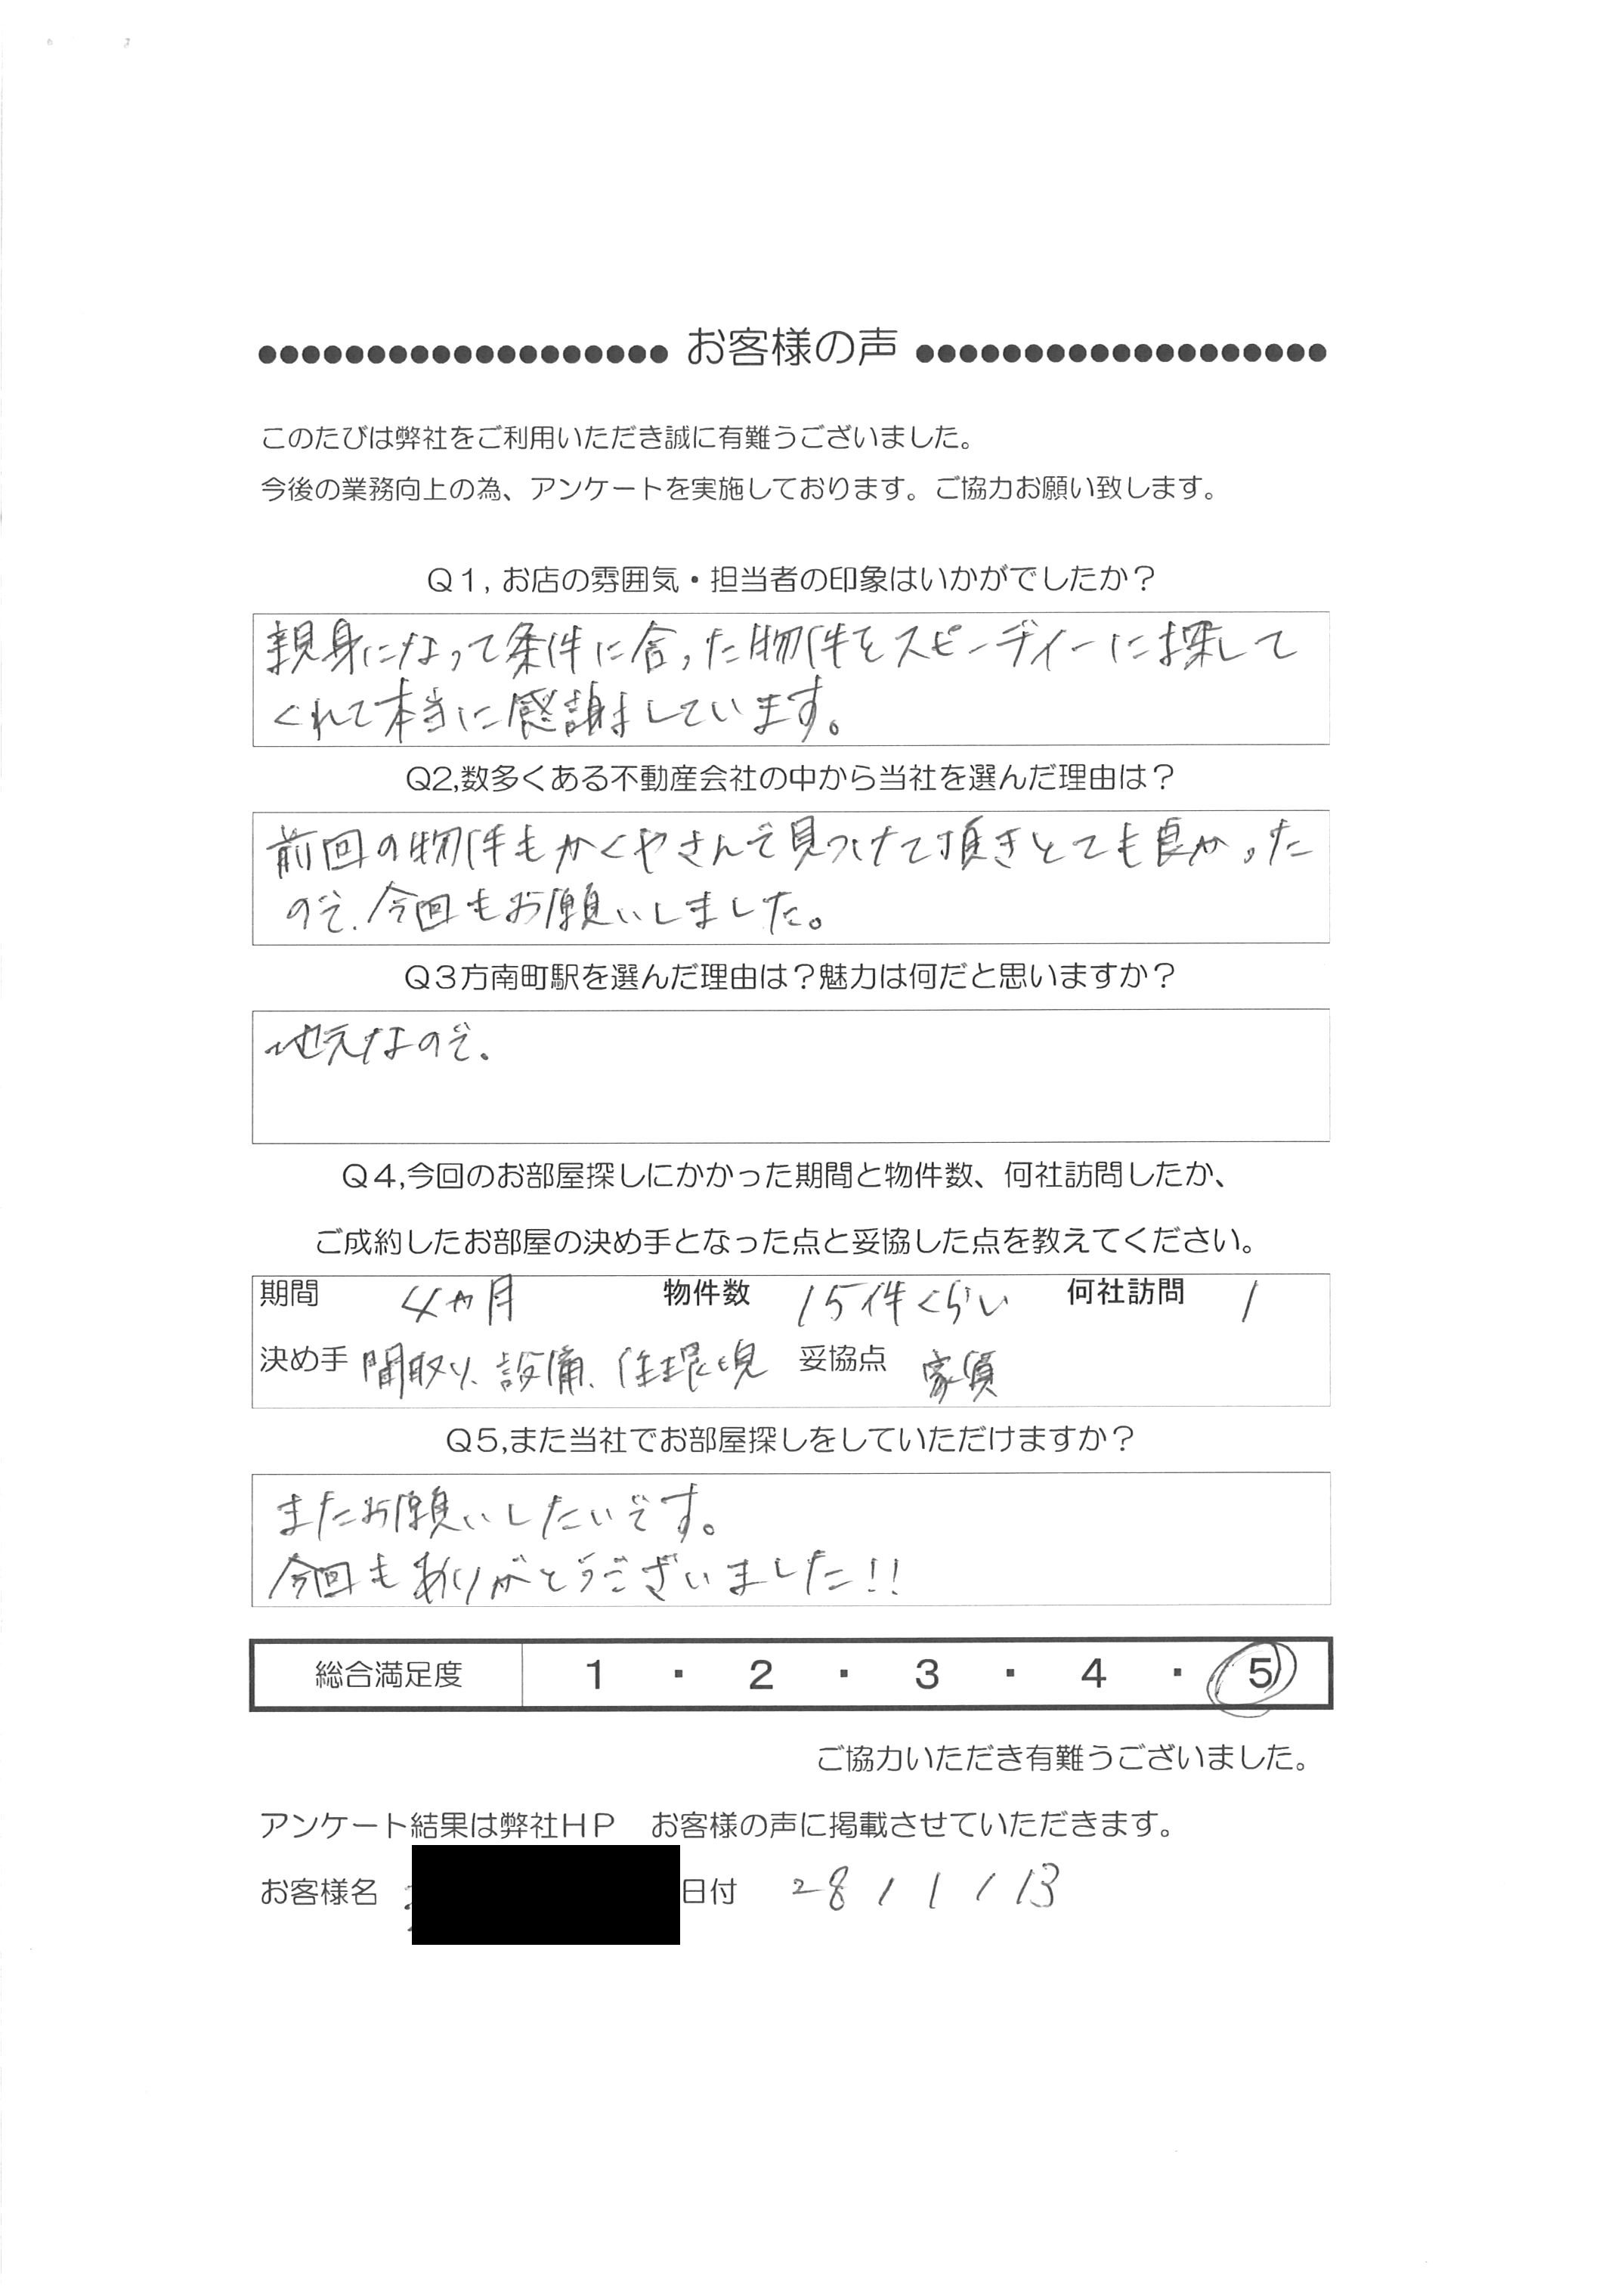 ●●●●●●●●●●●●●●●●●●● お客様の声 ●●●●●●●●●●●●●●●●●●●
このたびは弊社をご利用いただき誠に有難うございました。
今後の業務向上の為、アンケートを実施しております。ご協力お願い致します。
Q1, お店の雰囲気・担当者の印象はいかがでしたか？
親身になって条件に合った物件をスピーディーに探して
くれて本当に感謝しています。
Q2,数多くある不動産会社の中から当社を選んだ理由は？
前回の物件もかくやさんで見つけて頂きとても良かった
ので、今回もお願いしました。
Q3方南町駅を選んだ理由は？魅力は何だと思いますか？
地元なので。
Q4,今回のお部屋探しにかかった期間と物件数、何社訪問したか、
ご成約したお部屋の決め手となった点と妥協した点を教えてください。
期間 4ヵ月 物件数 15件くらい 何社訪問 1
決め手 間取り、設備、住環境 妥協点 家賃
Q5,また当社でお部屋探しをしていただけますか？
またお願いしたいです。
今回もありがとうございました!!
総合満足度 1 ・ 2 ・ 3 ・ 4 ・ 5
ご協力いただき有難うございました。
アンケート結果は弊社HP お客様の声に掲載させていただきます。
お客様名 日付 28 / 1 / 13